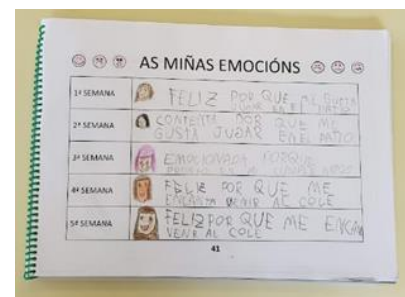 AS MIÑAS EMOCIÓNS
1ª SEMANA
FELIZ POR QUE ME GUSTA
JUGAR EN EL PATIO
2ª SEMANA
CONTENTA POR QUE ME
GUSTA JUGAR EN EL PATIO
3ª SEMANA
EMOCIONADA PORQUE
4ª SEMANA
FELIZ POR QUE ME
ENCANTA VENIR AL COLE
5ª SEMANA
FELIZ POR QUE ME ENCAN
VENIR AL COLE
41